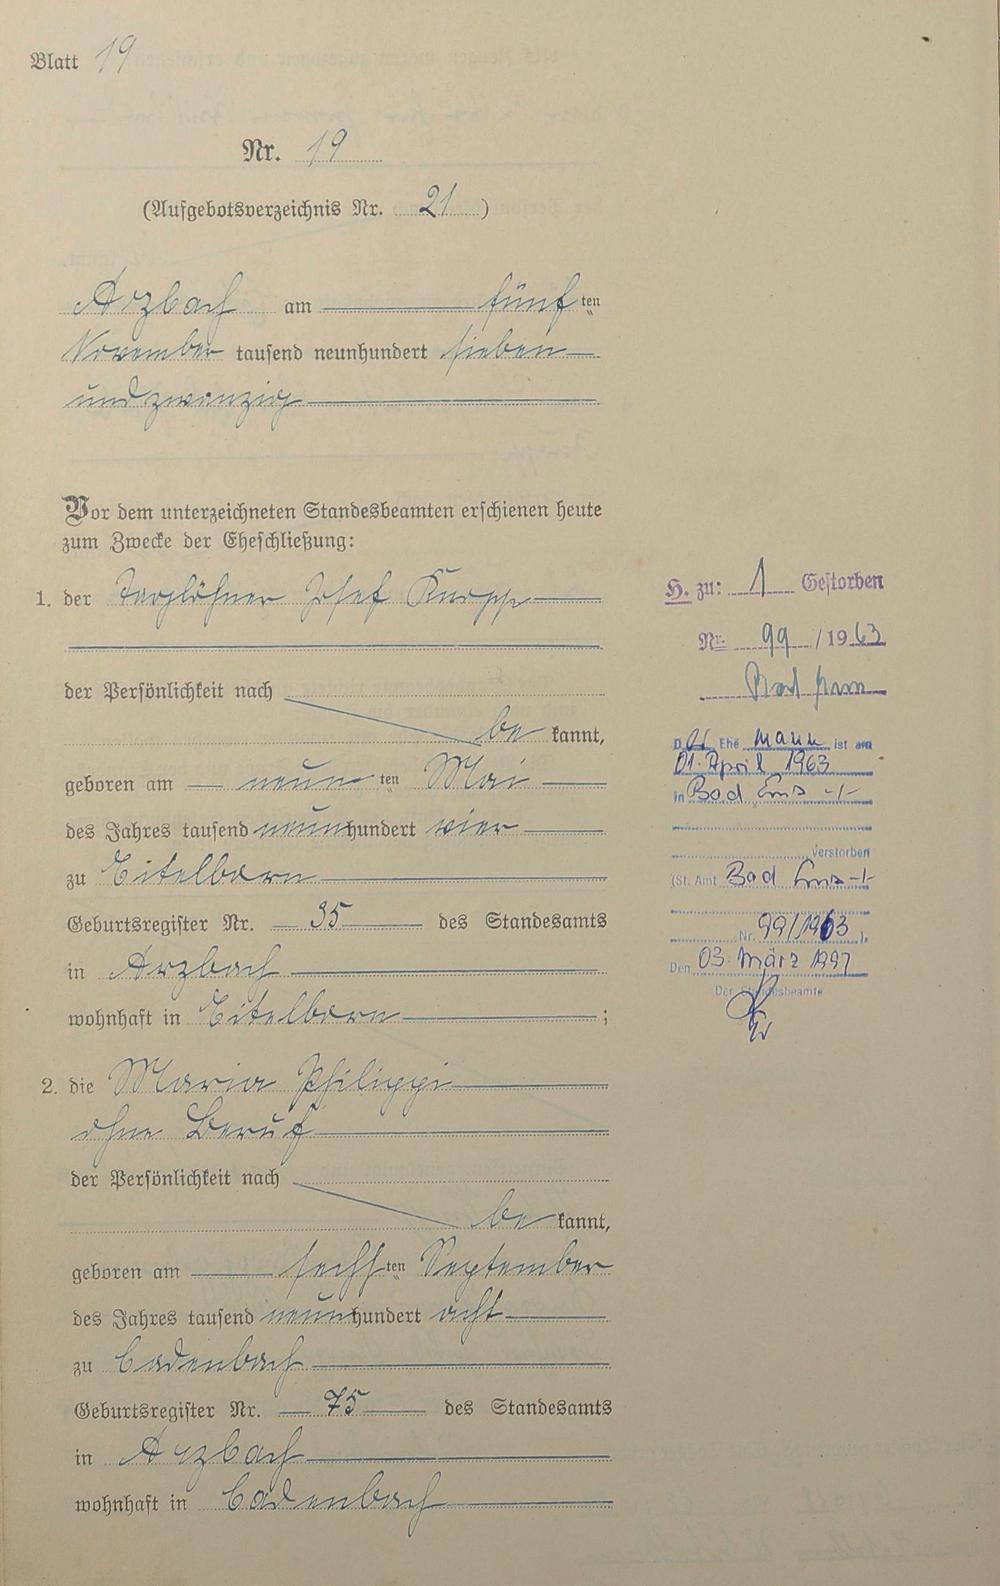 Blatt 19
Nr. 19
(Aufgebotsverzeichnis Nr. 21)
Arzbach am fünf ten
November tausend neunhundert sieben
und zwanzig
Vor dem unterzeichneten Standesbeamten erschienen heute
zum Zwecke der Eheschließung:
1. der Taglöhner Josef Knopp
der Persönlichkeit nach
be kannt,
geboren am neun ten Mai
des Jahres tausend neunhundert vier
zu Eitelborn
Geburtsregister Nr. 35 des Standesamts
in Arzbach
wohnhaft in Eitelborn ;
2. die Maria Philippi
ohne Beruf
der Persönlichkeit nach
be kannt,
geboren am sechs ten September
des Jahres tausend neunhundert acht
zu Cadenbach
Geburtsregister Nr. 75 des Standesamts
in Arzbach
wohnhaft in Cadenbach
H. zu: 1 Gestorben
Nr. 99 / 1963
Bad Ems
D er Ehe mann ist am
01. April 1963
in Bad Ems -/-
verstorben
(St. Amt Bad Ems -/-
Nr. 99/1963 ).
Den 03. März 1997
Der Standesbeamte